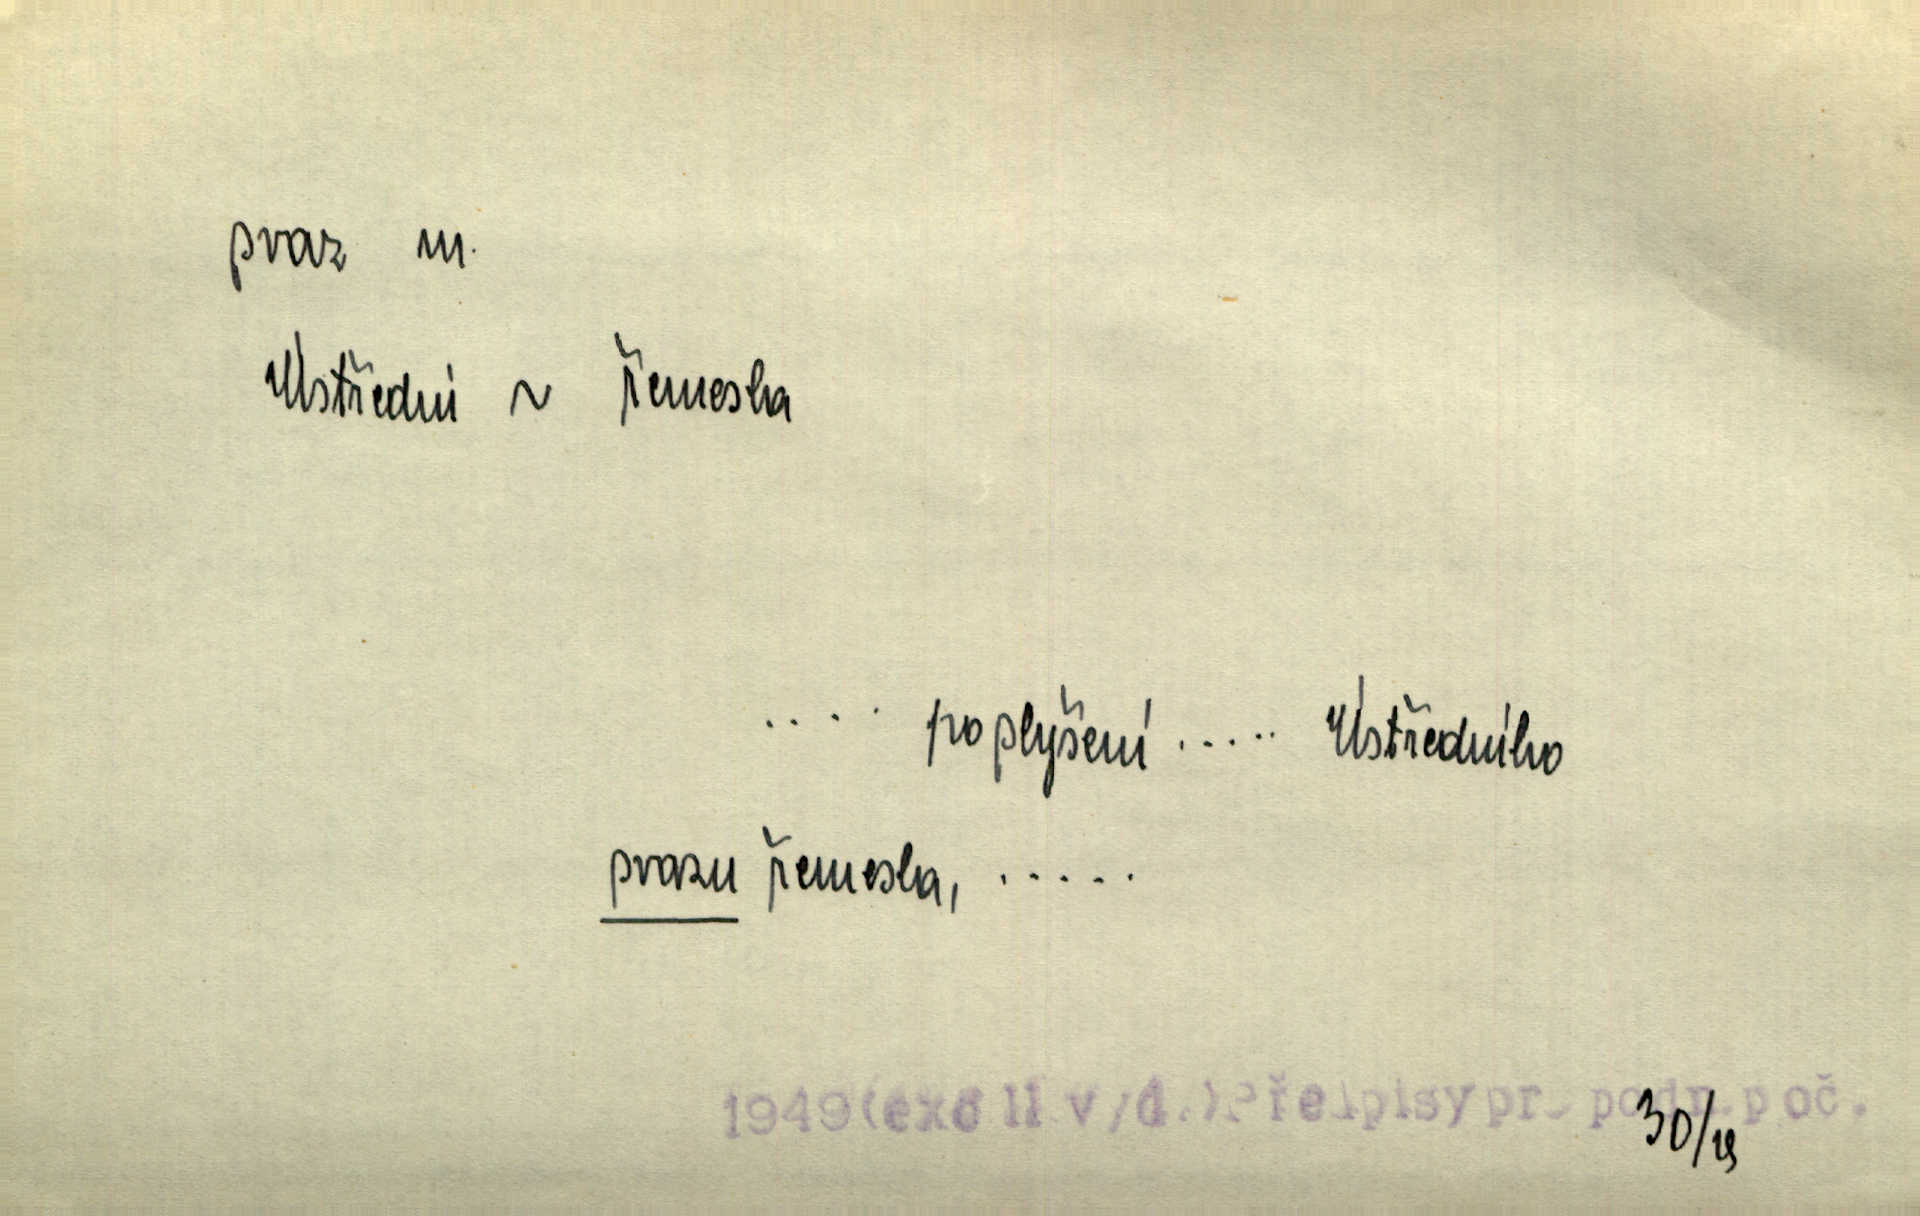 svaz m.
Ústřední ~ řemesla
.... po slyšení ..... Ústředního
svazu řemesla, .....
1949 v/d.) Předpisy pr. podn. poč.
30/